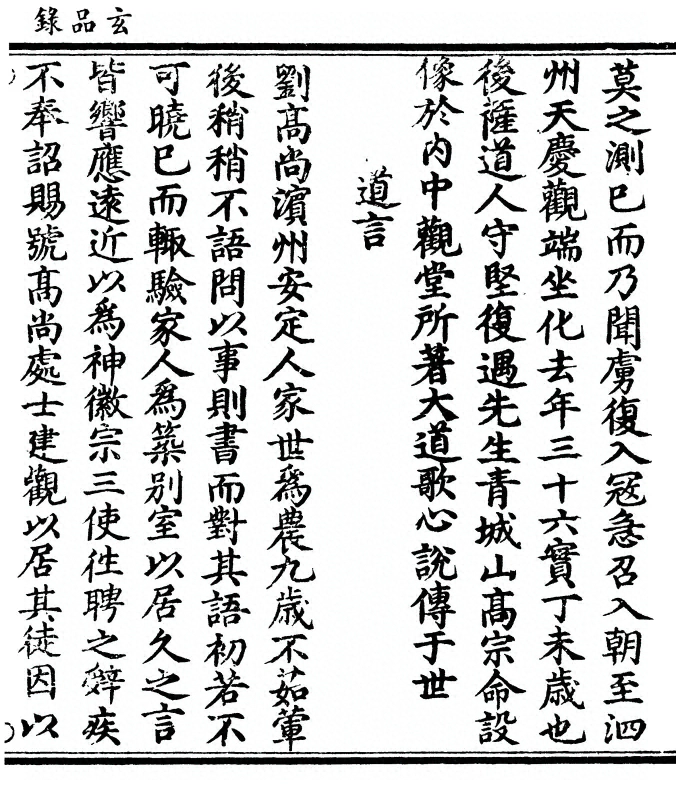 玄品錄
莫之測巳而乃聞虜復入冦急召入朝至泗
州天慶觀端坐化去年三十六實丁未歲也
後薩道人守堅復遇先生青城山髙宗命設
像於内中觀堂所著大道歌心說傳于世
道言
劉髙尚濱州安定人家世爲農九歲不茹葷
後稍稍不語問以事則書而對其語初若不
可曉巳而輙驗家人爲築別室以居久之言
皆響應遠近以爲神徽宗三使徃聘之辭疾
不奉詔賜號髙尚處士建觀以居其徒因以